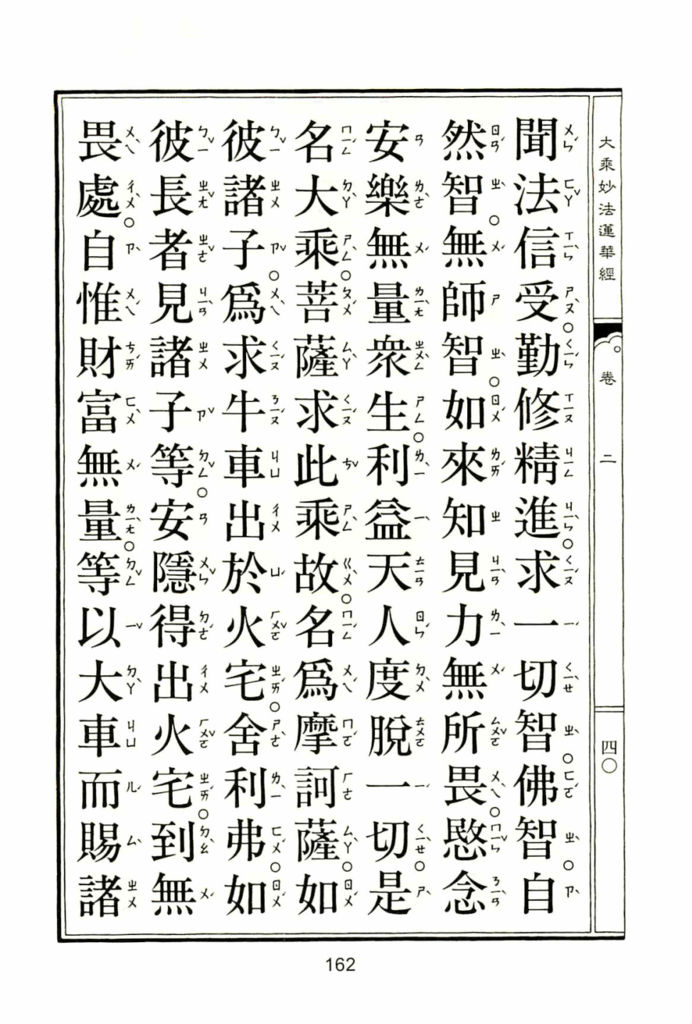 大乘妙法蓮華經 卷二 四〇
聞法信受。勤修精進。求一切智。佛智。自
然智。無師智。如來知見力無所畏。愍念
安樂無量衆生。利益天人。度脫一切。是
名大乘。菩薩求此乘故。名爲摩訶薩。如
彼諸子。爲求牛車出於火宅。舍利弗。如
彼長者見諸子等。安隱得出火宅。到無
畏處。自惟財富無量。等以大車而賜諸
162